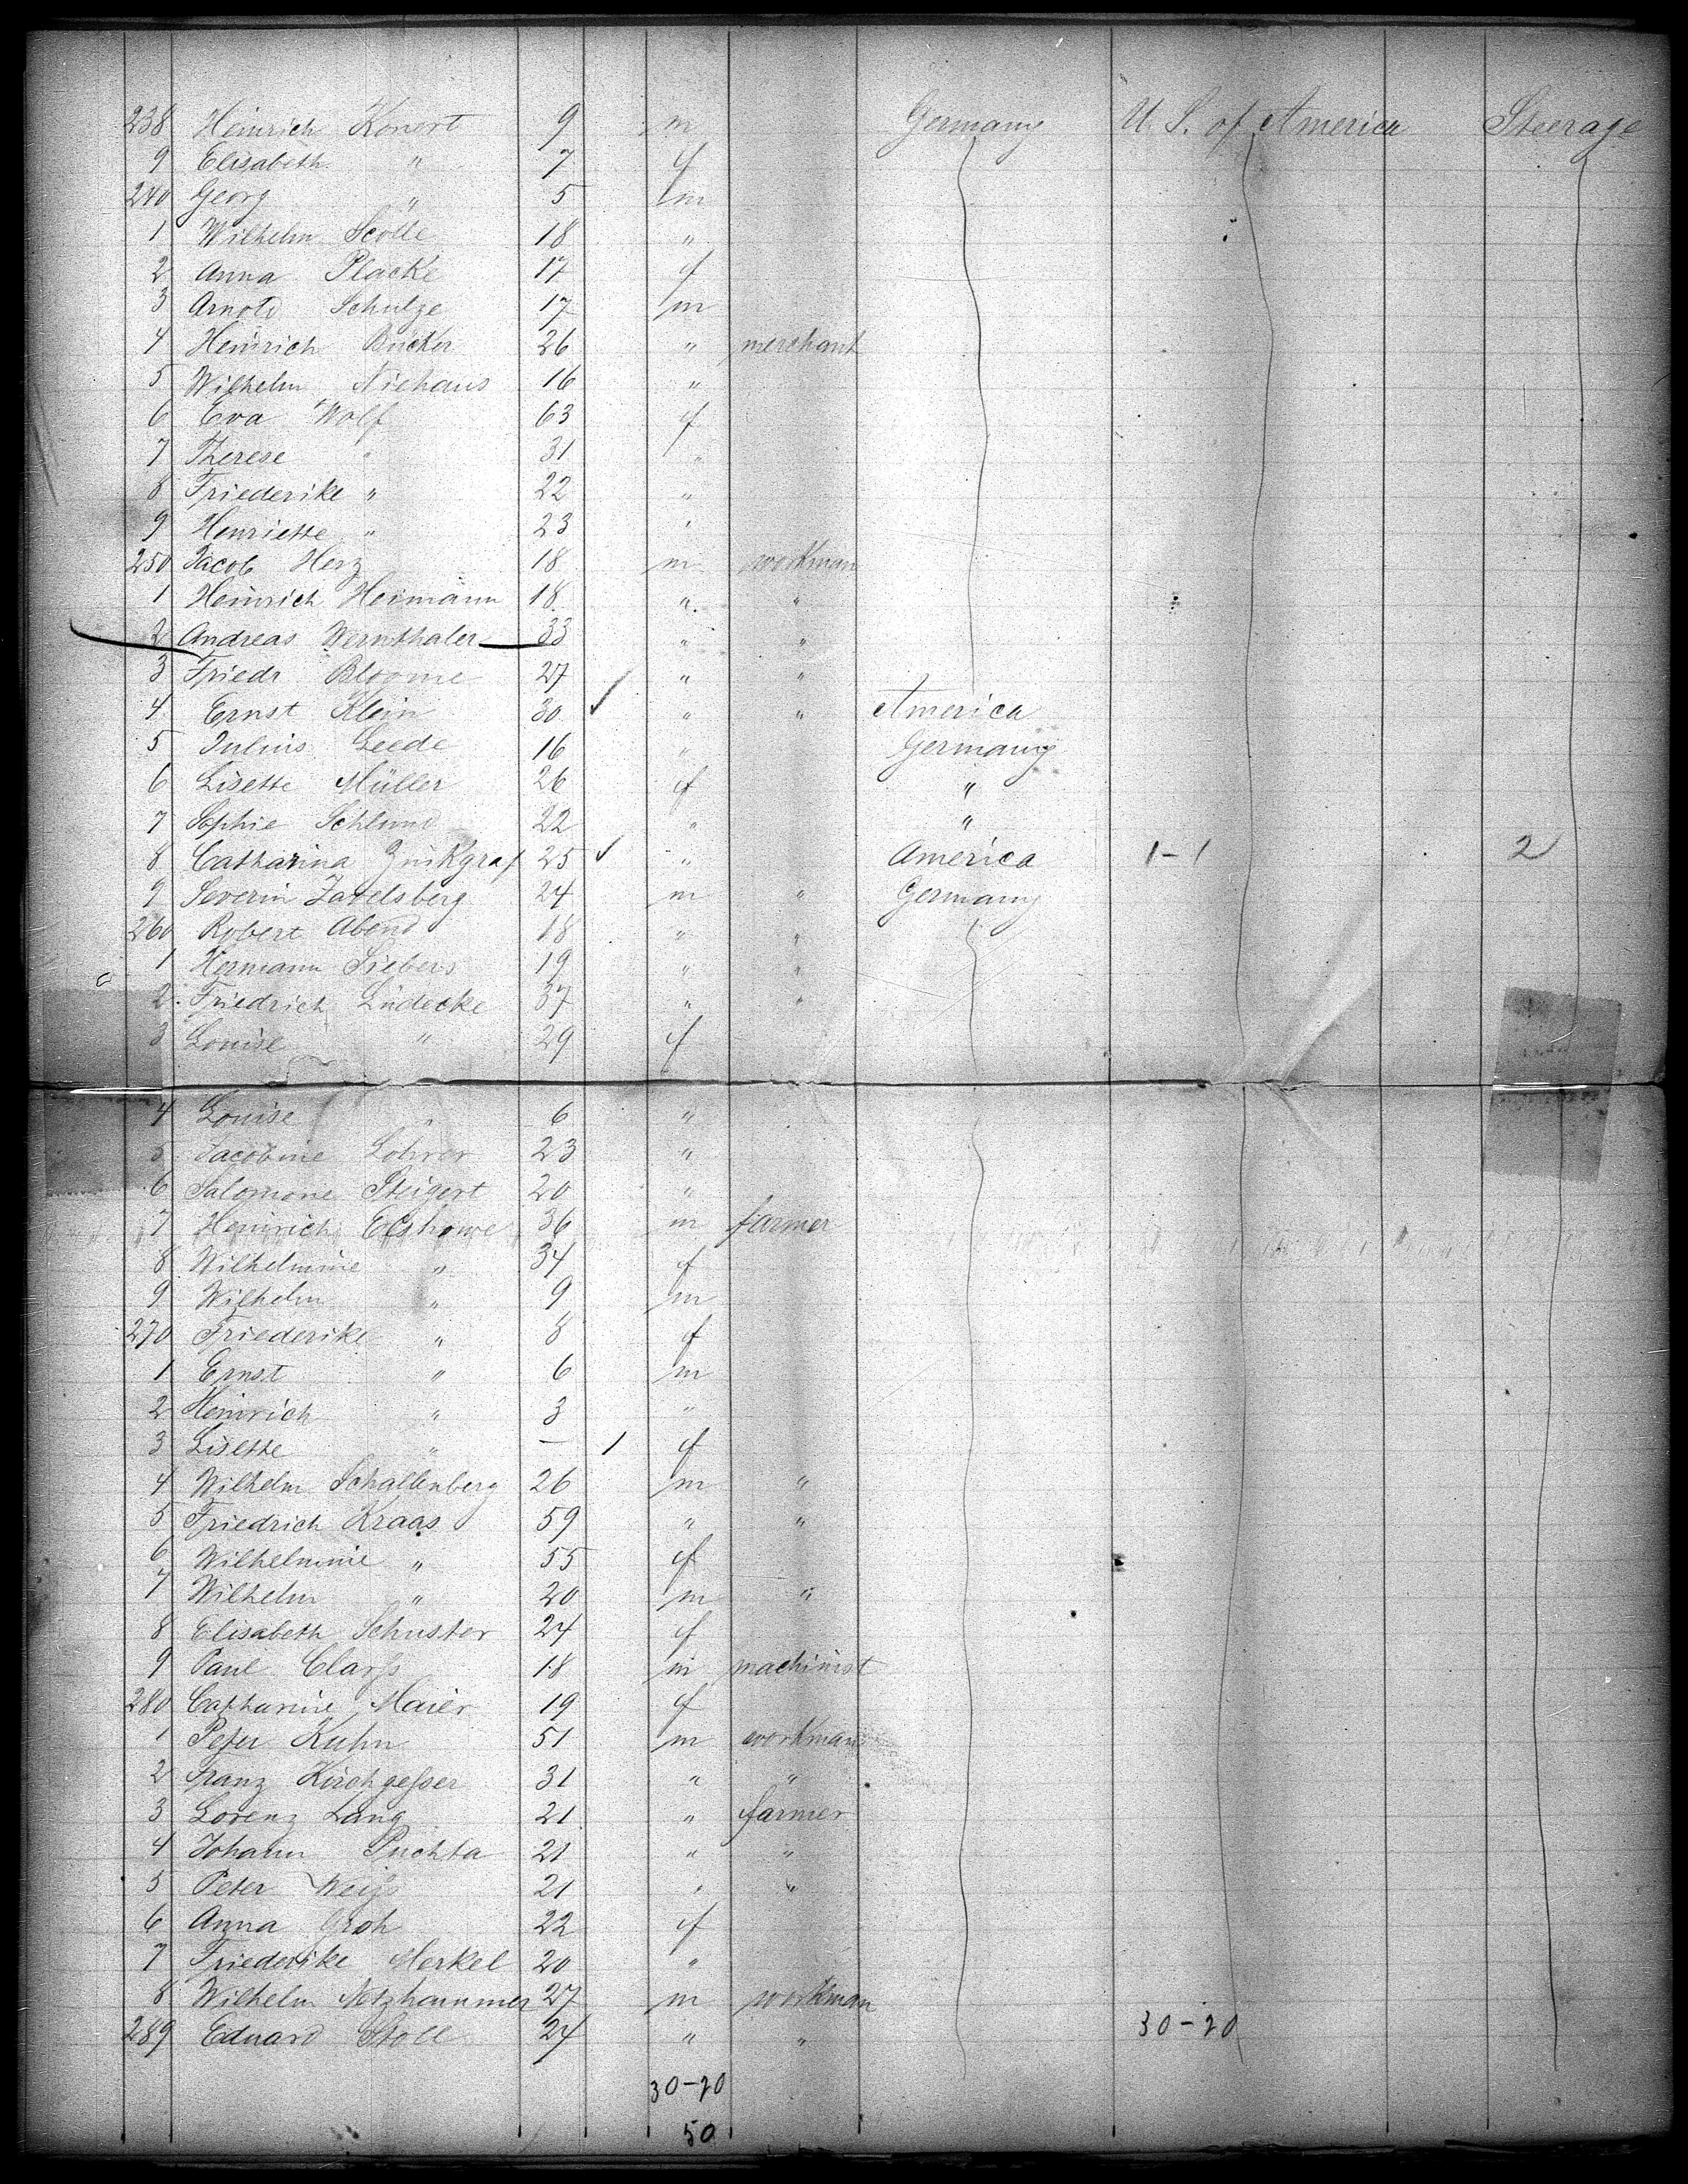 238 Heinrich Konert 9 m Germany U. S. of America Steerage
9 Elisabeth " 7 f
240 Georg " 5 m
1 Wilhelm Scolle 18 "
2 Anna Placke 17 f
3 Arnold Schulze 17 m
4 Heinrich Bücker 26 " merchant
5 Wilhelm Niehaus 16 "
6 Eva Wolf 63 f
7 Therese " 31 "
8 Friederike " 22 "
9 Henriette " 23 "
250 Jacob Herz 18 m workman
1 Heinrich Heimann 18 " "
2 Andreas Wernthaler 33 " "
3 Friedr. Bloome 27 " "
4 Ernst Klein 30 ✓ " " America
5 Julius Leede 16 " Germany
6 Lisette Müller 26 f "
7 Sophie Schlund 22 " "
8 Catharina Zinkgraf 25 ✓ " America 1-1 2
9 Severin Zavelsberg 24 m " Germany
260 Robert Abend 18 " "
1 Hermann Siebers 19 " "
2 Friedrich Lüdecke 37 " "
3 Louise " 29 f
4 Louise " 6 "
5 Jacobine Lohrer 23 "
6 Salomone Steigert 20 "
7 Heinrich 36 m farmer
8 Wilhelmine " 34 f
9 Wilhelm " 9 m
270 Friederike " 8 f
1 Ernst " 6 m
2 Heinrich " 3 "
3 Lisette " — 1 f
4 Wilhelm Schallenberg 26 m "
5 Friedrich Kraas 59 " "
6 Wilhelmine " 55 f
7 Wilhelm " 20 m "
8 Elisabeth Schuster 24 f
9 Paul Clarss 18 m machinist
280 Catharine Maier 19 f
1 Peter Kuhn 51 m workman
2 Franz Kirchgesser 31 " "
3 Lorenz Lang 21 " farmer
4 Johann Puchta 21 " "
5 Peter Weiss 21 " "
6 Anna Groh 22 f
7 Friederike Merkel 20 "
8 Wilhelm Netzhammer 27 m workman
289 Eduard Stoll 24 " " 30-20
30-20
50